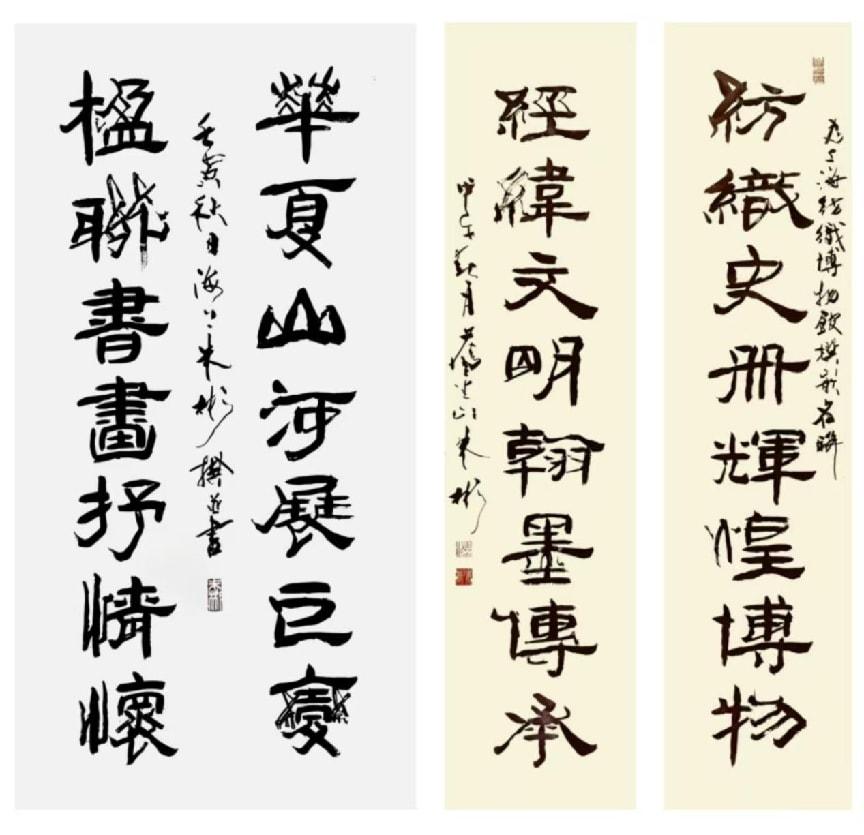 紡織史册輝煌博物
為上海紡織博物館撰名聯
經緯文明翰墨傳承
甲午秋月朱彬
華夏山河展巨變
楹聯書畫抒情懷
壬寅秋日海上朱彬撰並書